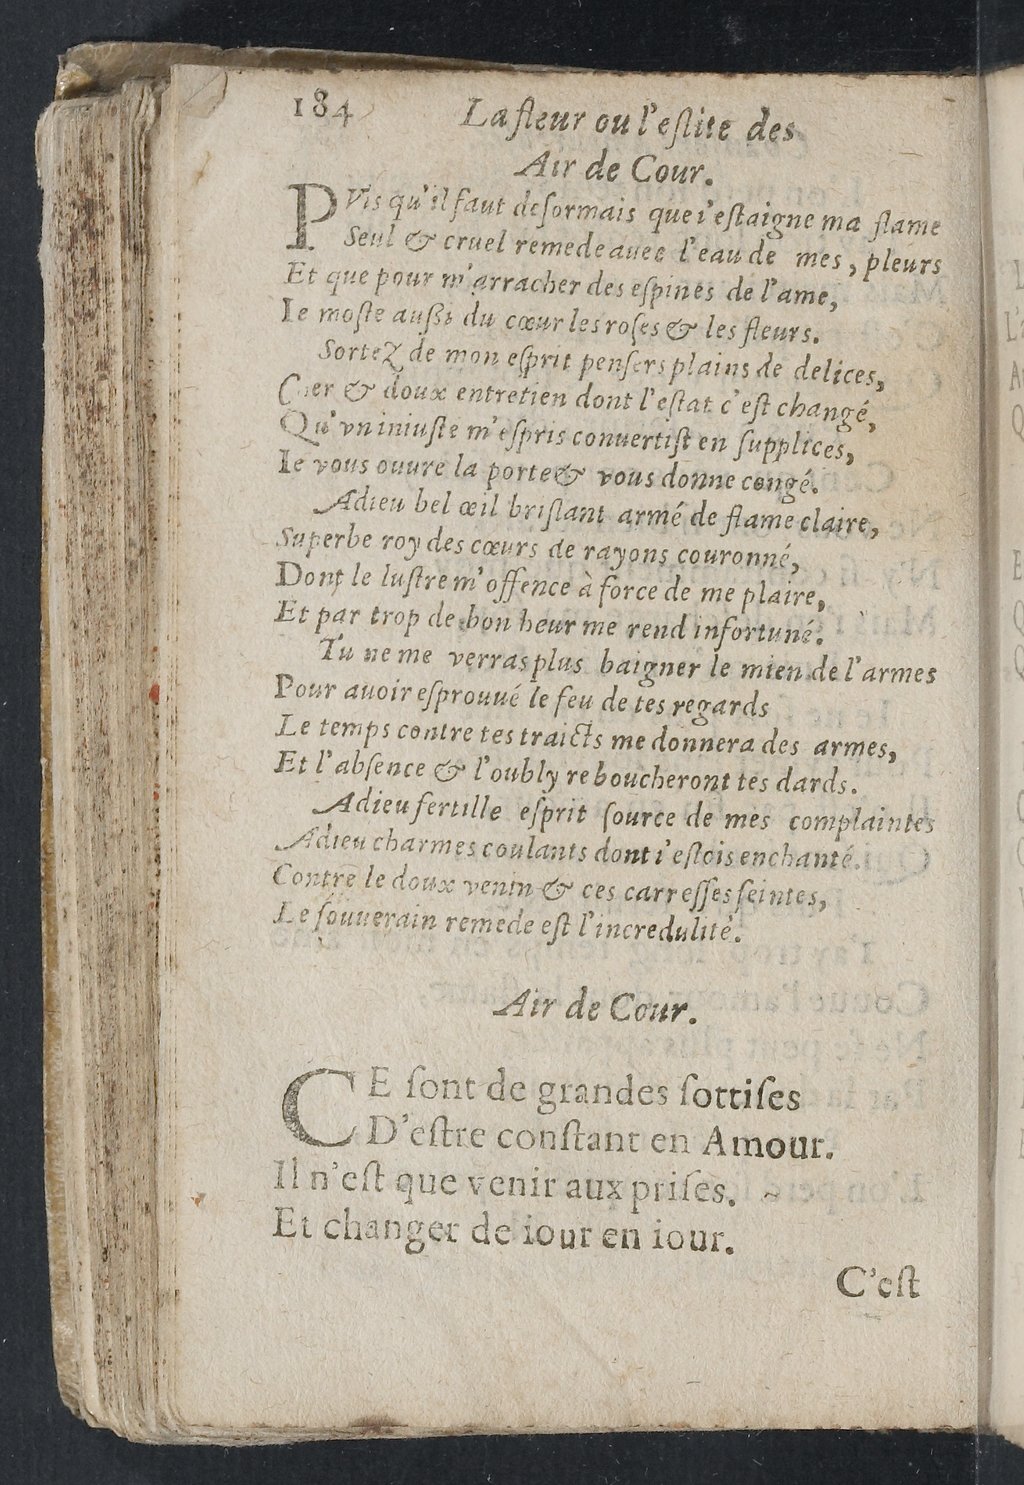 184 La fleur ou l'eslite des
Air de Cour.
PVis qu'il faut desormais que i'estaigne ma flame
Seul & cruel remede auec l'eau de mes, pleurs
Et que pour m'arracher des espines de l'ame,
Ie moste aussi du cœur les roses & les fleurs.
Sortez de mon esprit pensers plains de delices,
Cher & doux entretien dont l'estat c'est changé,
Qu'vn iniuste m'espris conuertist en supplices,
Ie vous ouure la porte & vous donne congé.
Adieu bel œil brislant armé de flame claire,
Superbe roy des cœurs de rayons couronné,
Dont le lustre m'offence à force de me plaire,
Et par trop de bon heur me rend infortuné.
Tu ne me verras plus baigner le mien de l'armes
Pour auoir esprouué le feu de tes regards
Le temps contre tes traicts me donnera des armes,
Et l'absence & l'oubly reboucheront tes dards.
Adieu fertille esprit source de mes complaintes
Adieu charmes coulants dont i'estois enchanté.
Contre le doux venin & ces carresses feintes,
Le souuerain remede est l'incredulité.
Air de Cour.
CE sont de grandes sottises
D'estre constant en Amour.
Il n'est que venir aux prises.
Et changer de iour en iour.
C'est